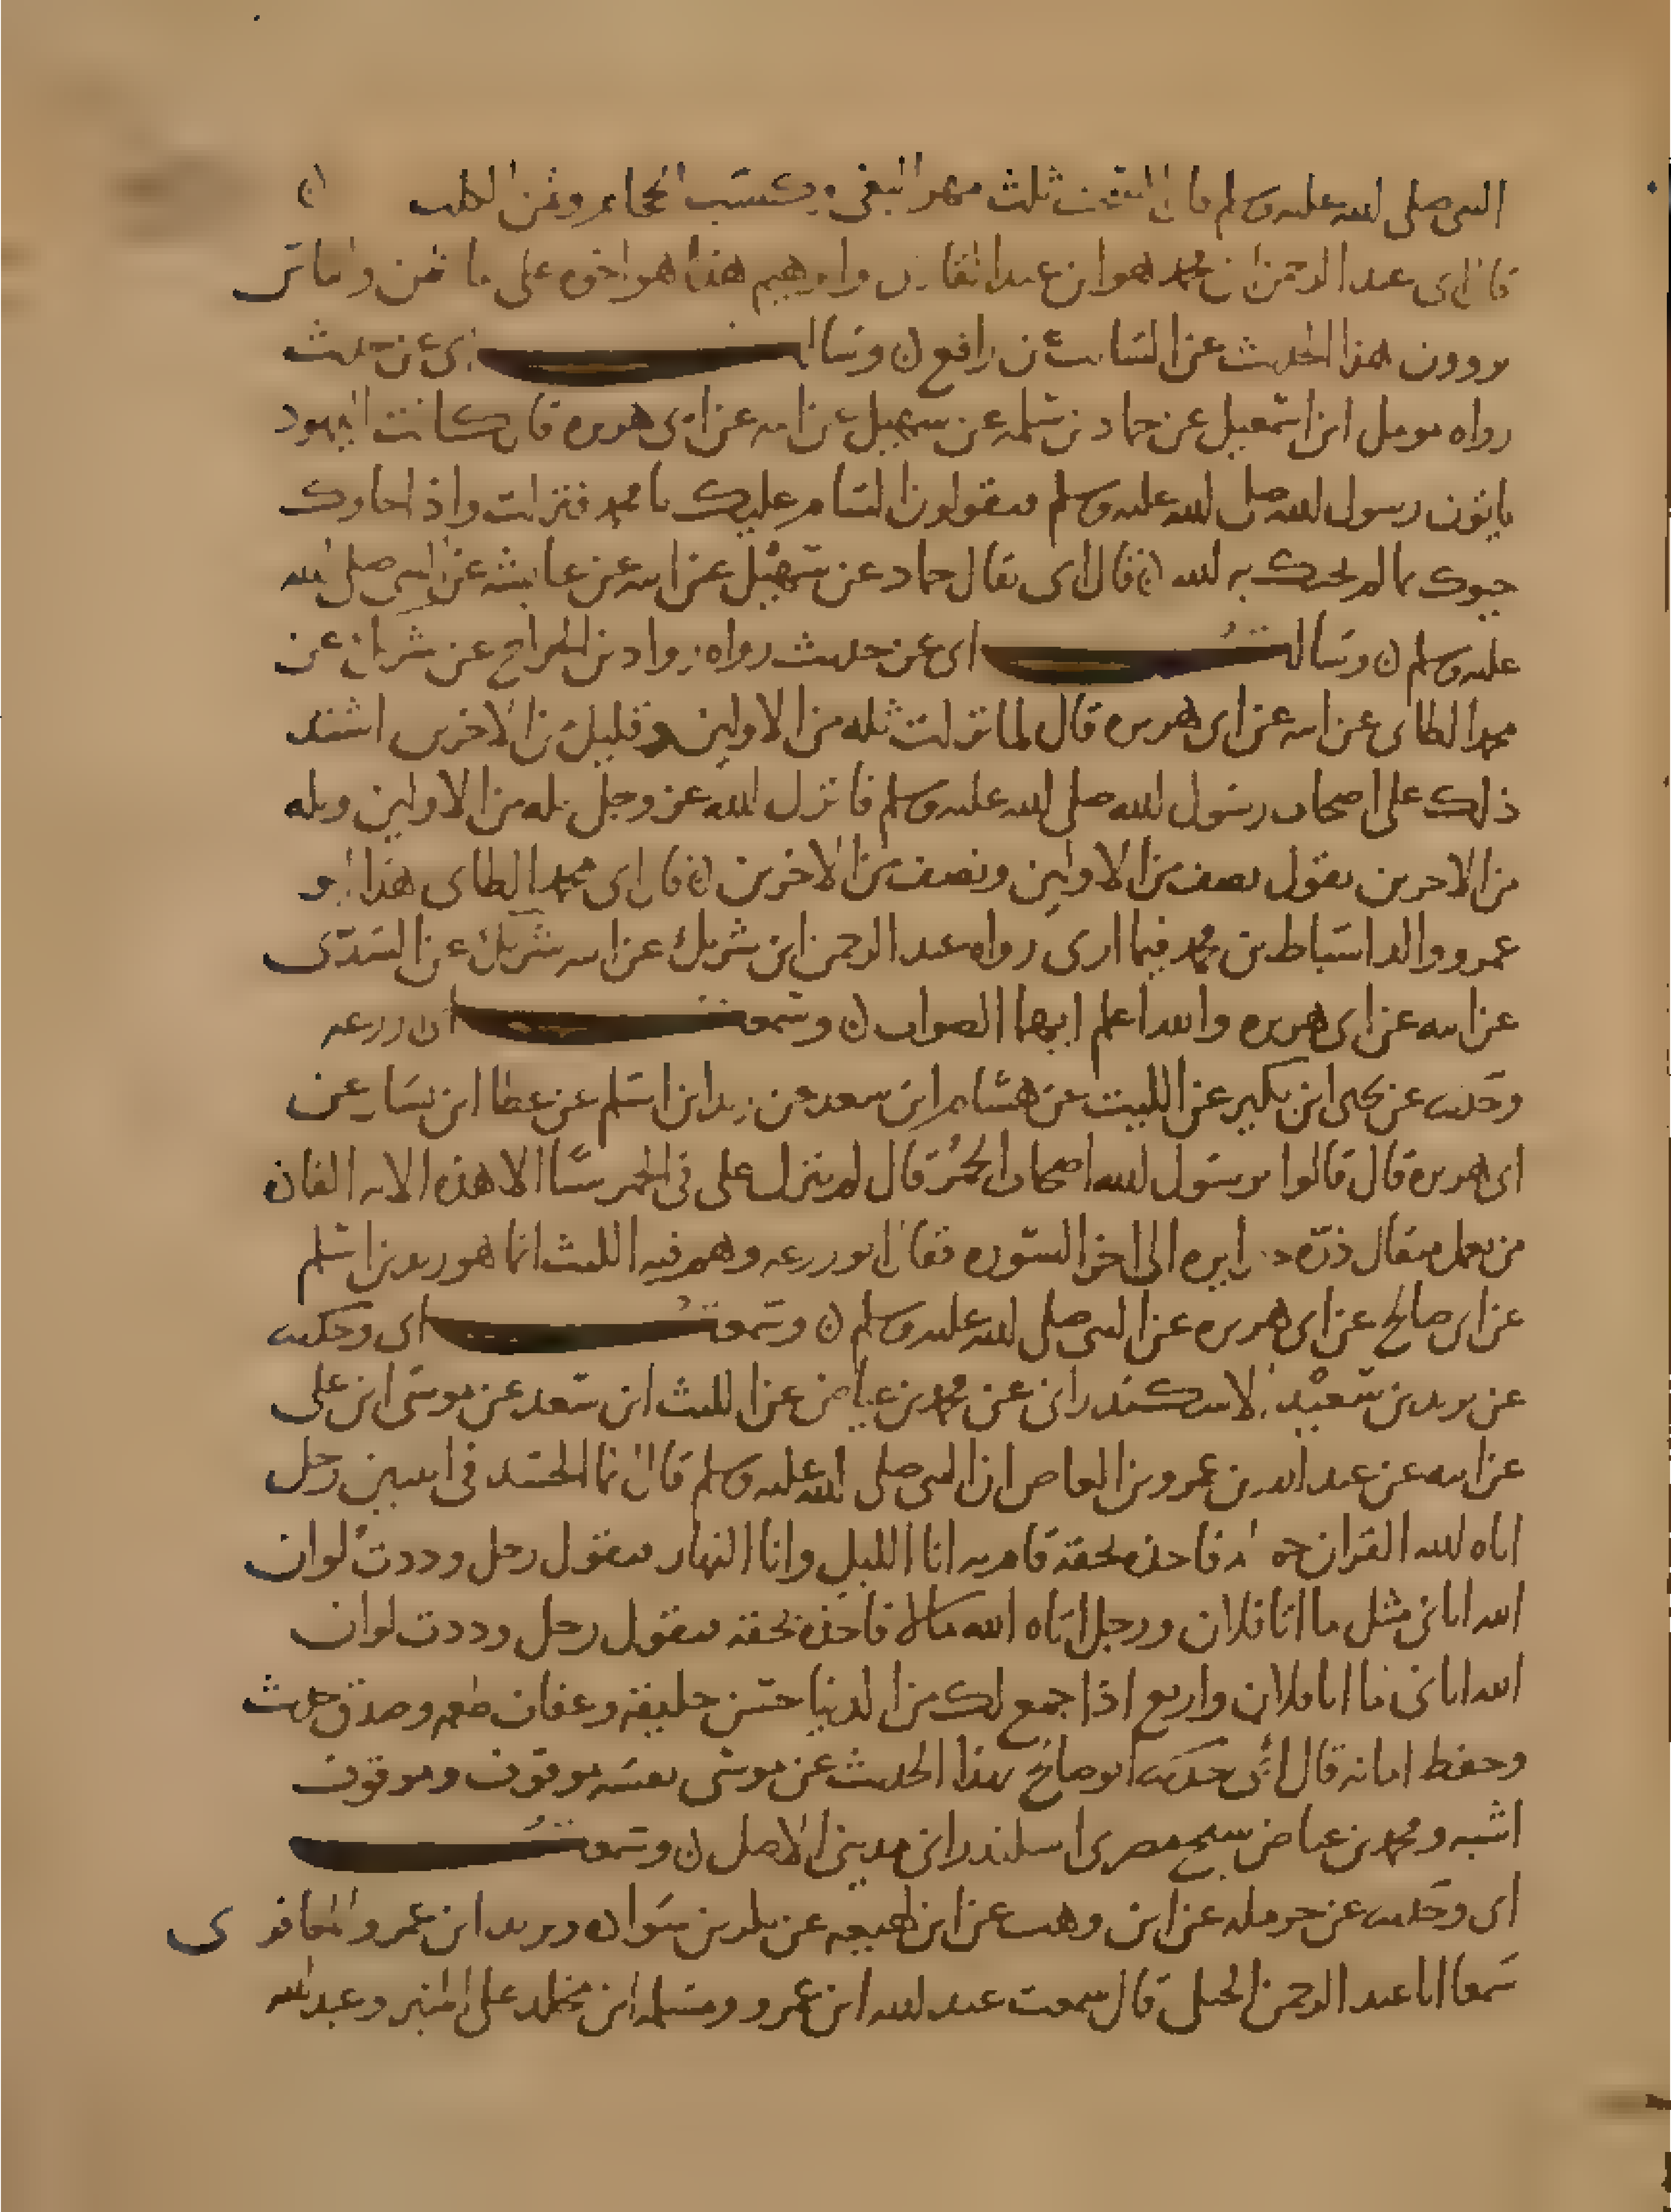 النبي صلى الله عليه وسلم قال السحت ثلث مهر البغي وكسب الحجام وثمن الكلب ن
قال ابي عبد الرحمن بن محمد هو ابن عبد القاري وابرهيم هذا هو اخوه على ما ثمن واما تر
يروون هذا الحديث عن السائب بن رافع ن وسالت ابي عن حديث
رواه مومل ابن اسمعيل عن حماد بن سلمه عن سهيل عن ابيه عن ابي هريره قال كانت اليهود
ياتون رسول الله صلى الله عليه وسلم فيقولون السام عليك يا محمد فنزلت واذا جاوك
حيوك بما لم يحيك به الله ن قال ابي يقال حماد عن سهيل عن ابيه عن عايشه عن النبي صلى الله
عليه وسلم ن وسالت ابي عن حديث رواه رواد بن الجراح عن شريك عن
محمد الطاي عن ابيه عن ابي هريره قال لما نزلت ثله من الاولين وقليل من الاخرين اشتد
ذلك على اصحاب رسول الله صلى الله عليه وسلم فانزل الله عز وجل ثله من الاولين وثله
من الاخرين يقول نصف من الاولين ونصف من الاخرين ن قال ابي محمد الطاي هذا ابو
عمرو والد اسباط بن محمد فيما ارى رواه عبد الرحمن ابن شريك عن ابيه شريك عن السدي
عن ابيه عن ابي هريره والله اعلم ايهما الصواب ن وسمعت ابا زرعه
وحدثنا عن يحيى ابن بكير عن الليث عن هشام ابن سعد عن زيد ابن اسلم عن عطا ابن يسار عن
ابي هريره قال قالوا يرسول الله اصحاب الحمر قال لم ينزل علي في الحمر شيا الا هذه الايه الفاذه
من يعمل مثقال ذره خيرا يره الى اخر السوره فقال ابو زرعه وهم فيه الليث انما هو زيد بن اسلم
عن ابي صالح عن ابي هريره عن النبي صلى الله عليه وسلم ن وسمعت ابي وحدثنا
عن يزيد بن سعيد الاسكندراني عن محمد بن عياض عن الليث ابن سعد عن موسى ابن علي
عن ابيه عن عبد الله بن عمرو بن العاص ان النبي صلى الله عليه وسلم قال انما الحسد في اثنين رجل
اتاه الله القران فاخذه بحقه قام به انا الليل وانا النهار فيقول رجل وددت لو ان
الله اتاني مثل ما اتا فلان ورجل اتاه الله مالا فاخذه بحقه فيقول رجل وددت لو ان
الله اتاني ما اتا فلان واربع اذا جمع لك من الدنيا حسن خليقه وعفاف طعمه وصدق حديث
وحفظ امانه قال ابي حدثنا ابو صالح بهذا الحديث عن موسى نفسه موقوف وموقوف
اشبه ومحمد بن عياض شيخ مصري اسكندراني مديني الاصل ن وسمعت
ابي وحدثنا عن حرمله عن ابن وهب عن ابن لهيعه عن بكر بن سواده ويزيد ابن عمرو المعافري
سمعا ابا عبد الرحمن الحبلي قال سمعت عبد الله ابن عمرو ومسلمه ابن مخلد على المنبر وعبد الله